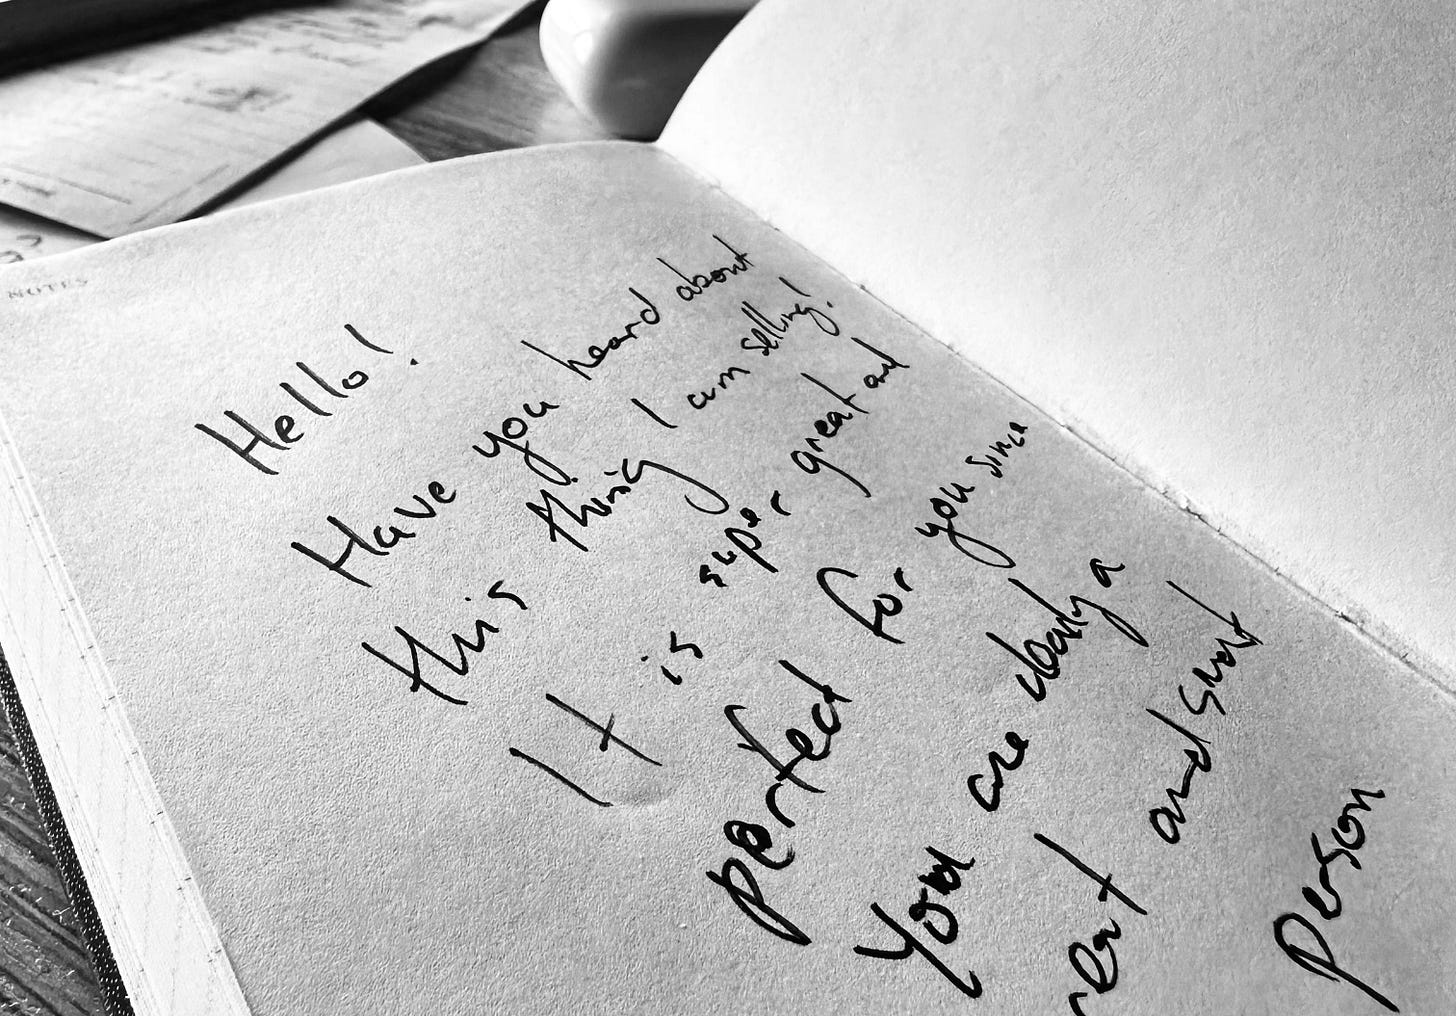 NOTES
Hello!
Have you heard about
this thing I am selling!
It is super great and
perfect for you since
You are clearly a
and smart
person